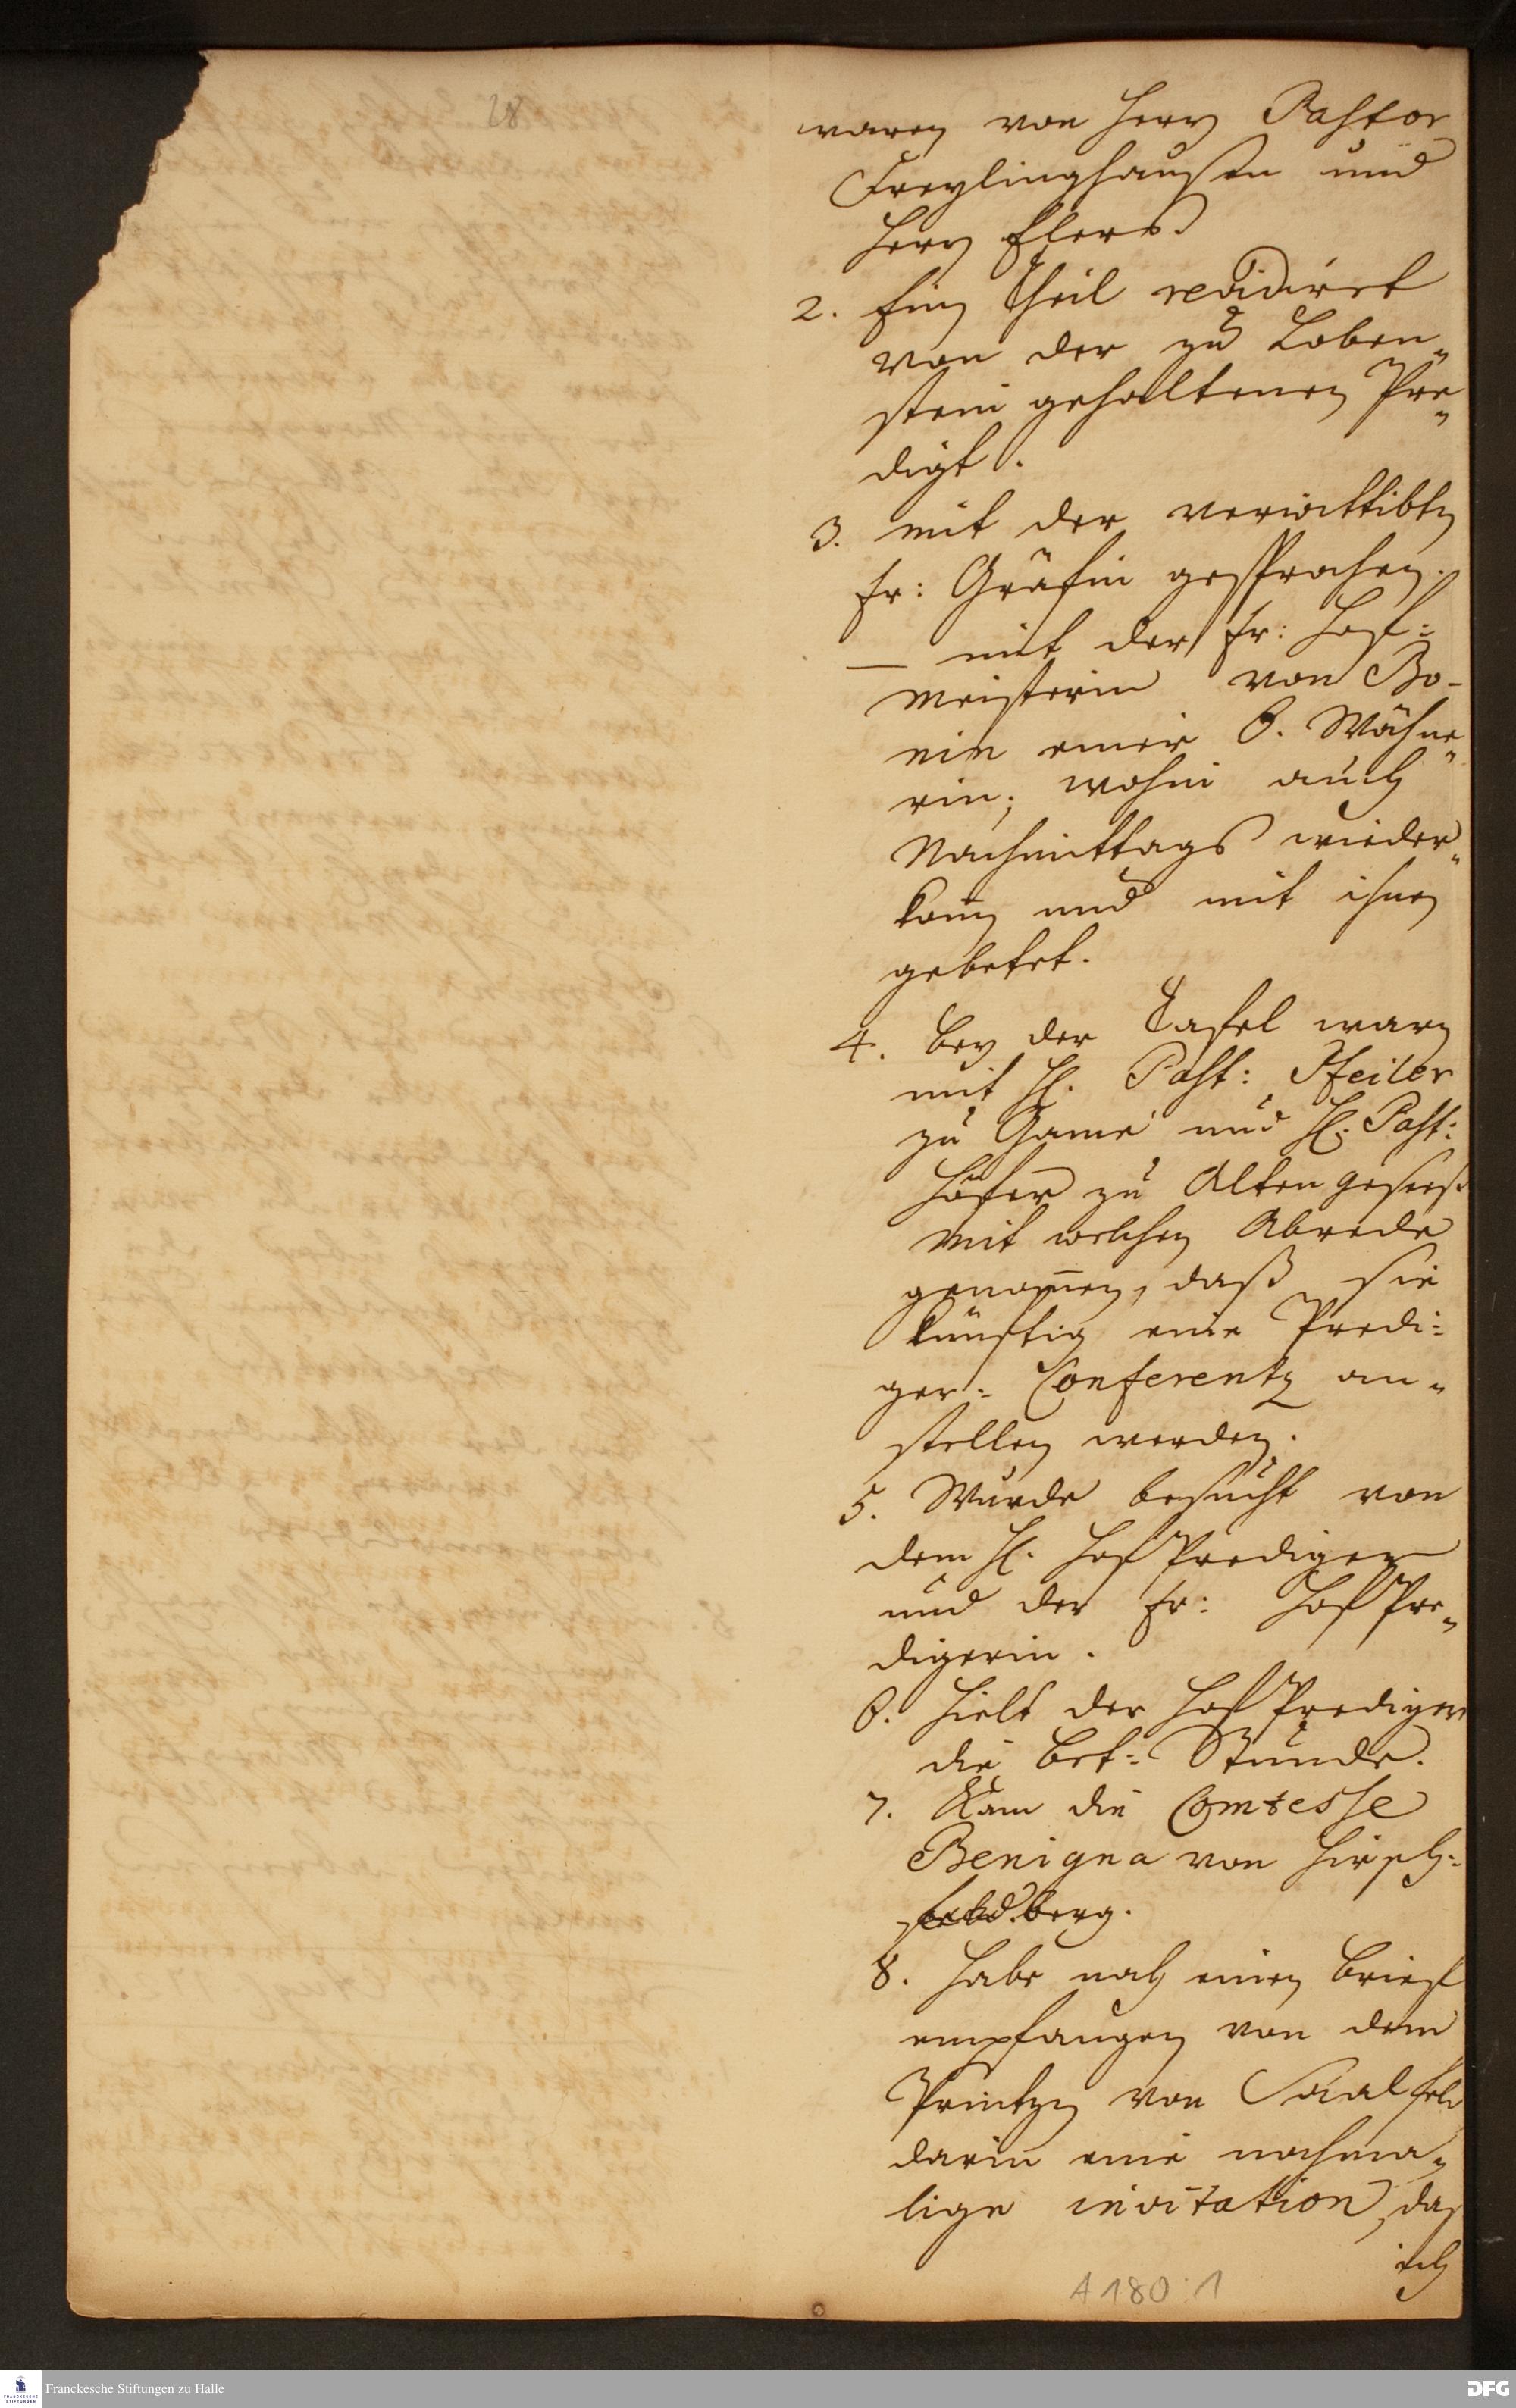 28
waren von Herrn Pastor
Freylinghausen und
Herrn Elers.
2. Ein Theil revidiret
von der zu Loben„
stein gehaltenen Pre„
digt.
3. mit der verwittibten
Fr: Gräfin gesprochen.
— mit der Fr: Hof-
meisterin von Bo-
nin einer 6. Wöchne„
rin; wohin auch
Nachmittags wieder„
kom̄en und mit ihnen
gebetet.
4. Bey der Tafel waren
mit H. Past: Pfeiler
zu Game und H. Past:
Höfer zu Alten Geseeß
mit welchen Abrede
genom̄en, daß sie
künftig eine Predi-
ger-Conferentz an„
stellen werden.
5. Wurde besucht von
dem H. Hof Prediger
und der Fr: Hof Pre„
digerin.
6. Hielt der Hof Prediger
die Bet-Stunde.
7. Kam die Comtesse
Benigna von Hirsch-
berg.
8. Habe noch einen Brief
empfangen von dem
Printzen von Saalfeld
darin eine nochma„
lige invitation, daß
ich
A 180:1
Franckesche Stiftungen zu Halle
DFG